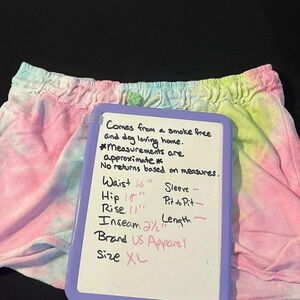 Comes from a smoke free
and dog loving home.
*Measurements are
approximate*
No returns based on measures.
Waist 16" Sleeve —
Hip 18" Pit to Pit —
Rise 11" Length —
Inseam 2½"
Brand US Apparel
Size XL